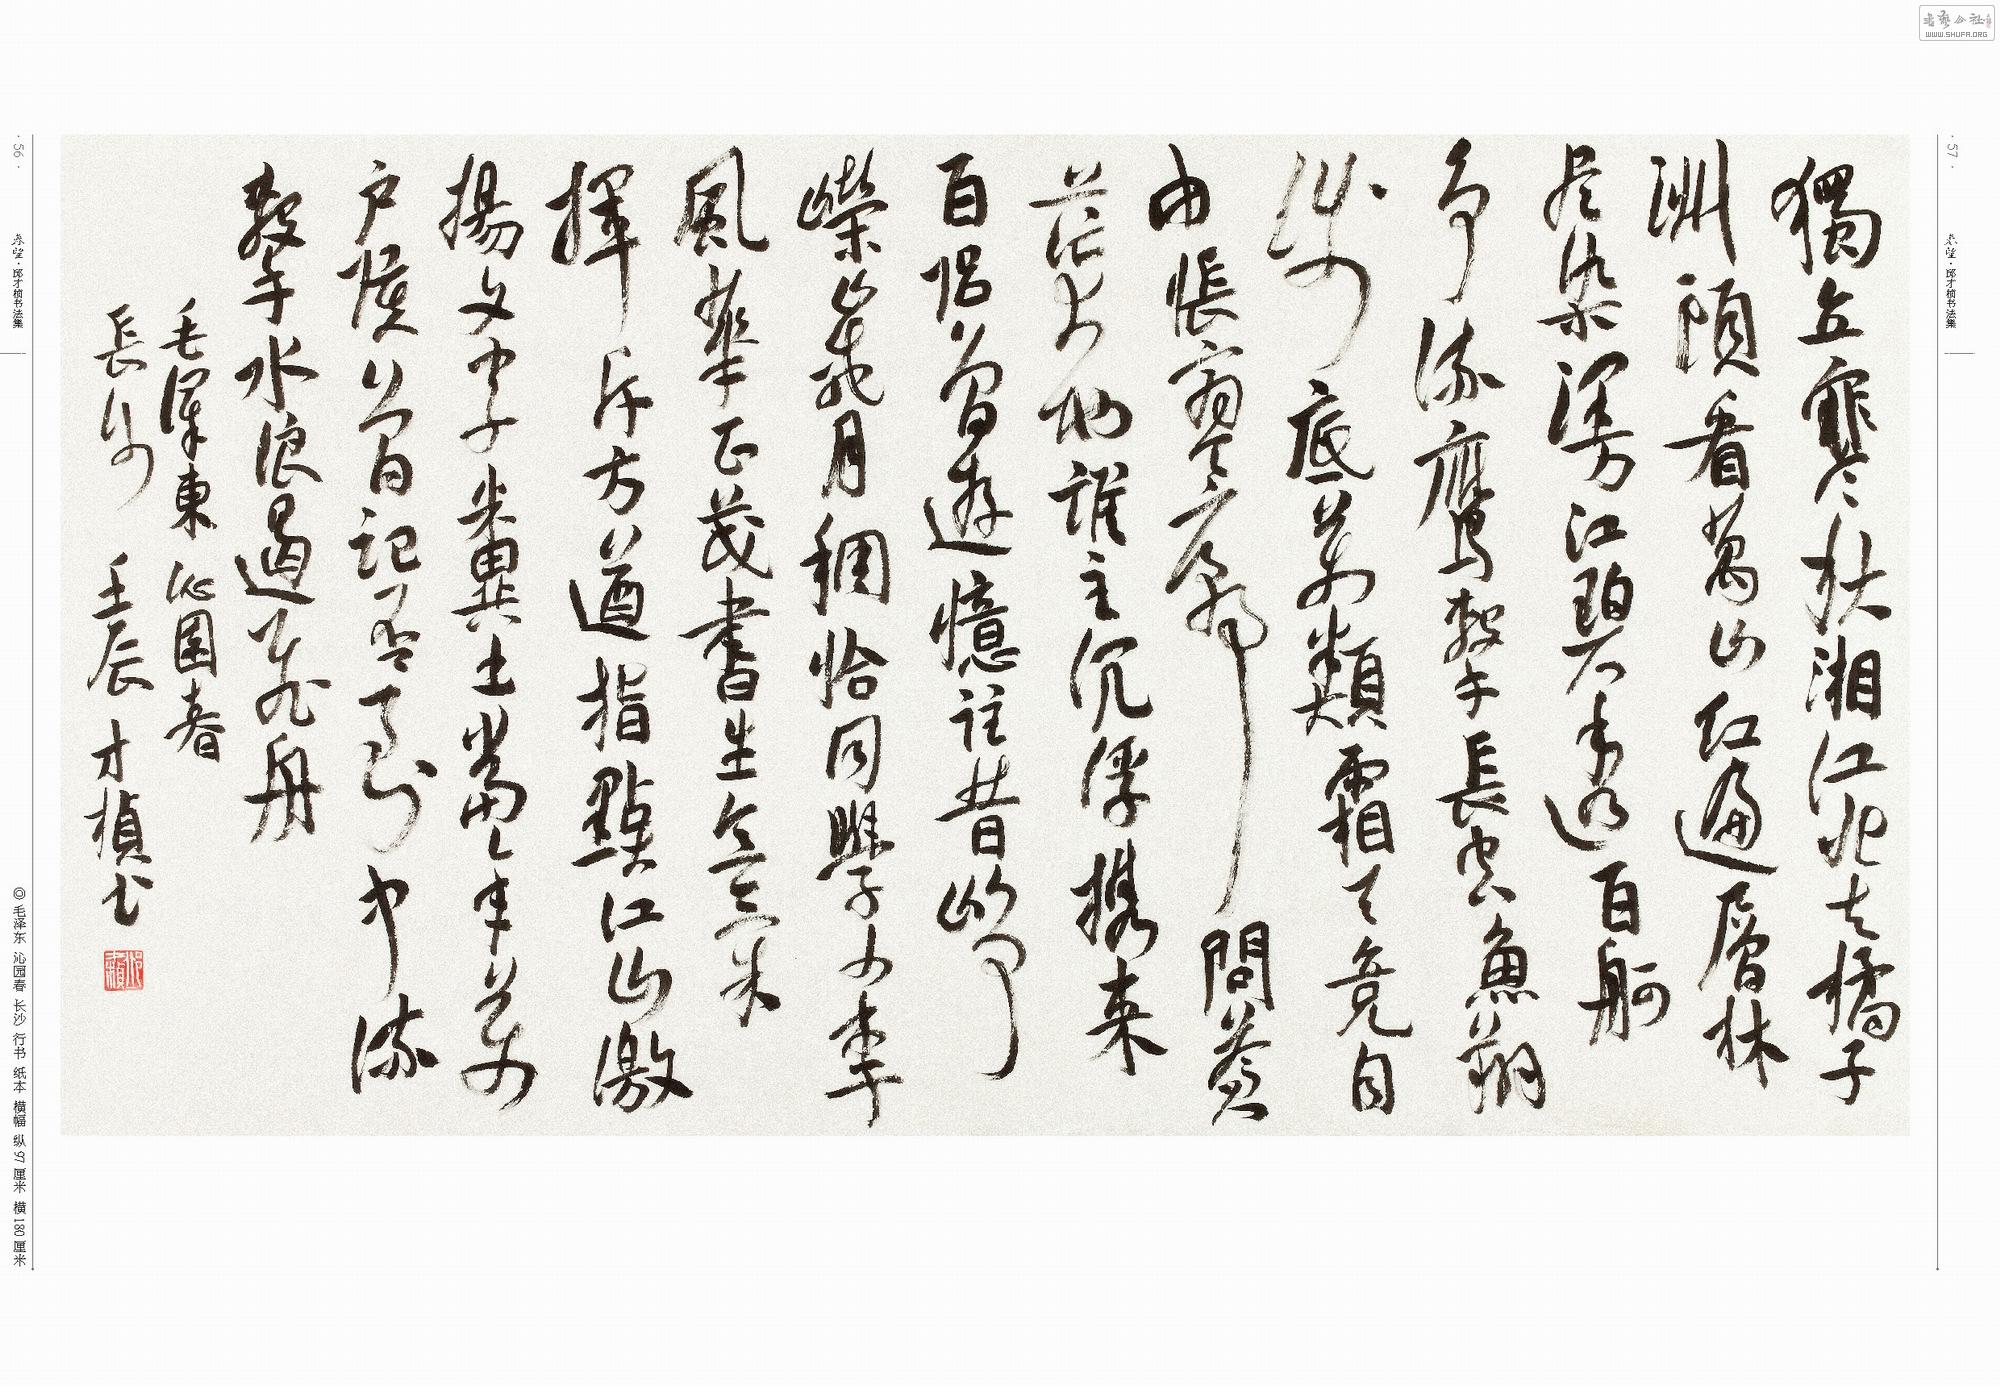 書藝公社
WWW.SHUFA.ORG
· 57 ·
邱才桢书法集
獨立寒秋湘江北去橘子
洲頭看萬山红遍層林
尽染漫江碧透百舸
争流鷹擊長空魚翔
浅底萬類霜天竞自
由悵寥廓問蒼
茫大地誰主沉浮携来
百侣曾遊憶往昔崢
嶸歲月稠恰同學少年
風華正茂書生意氣
揮斥方遒指點江山激
揚文字糞土當年萬
户侯曾記否到中流
擊水浪遏飛舟
毛澤東沁園春
長沙 壬辰 才楨书
· 56 ·
邱才桢书法集
◎ 毛泽东 沁园春 长沙 行书 纸本 横幅 纵 97 厘米 横 180 厘米